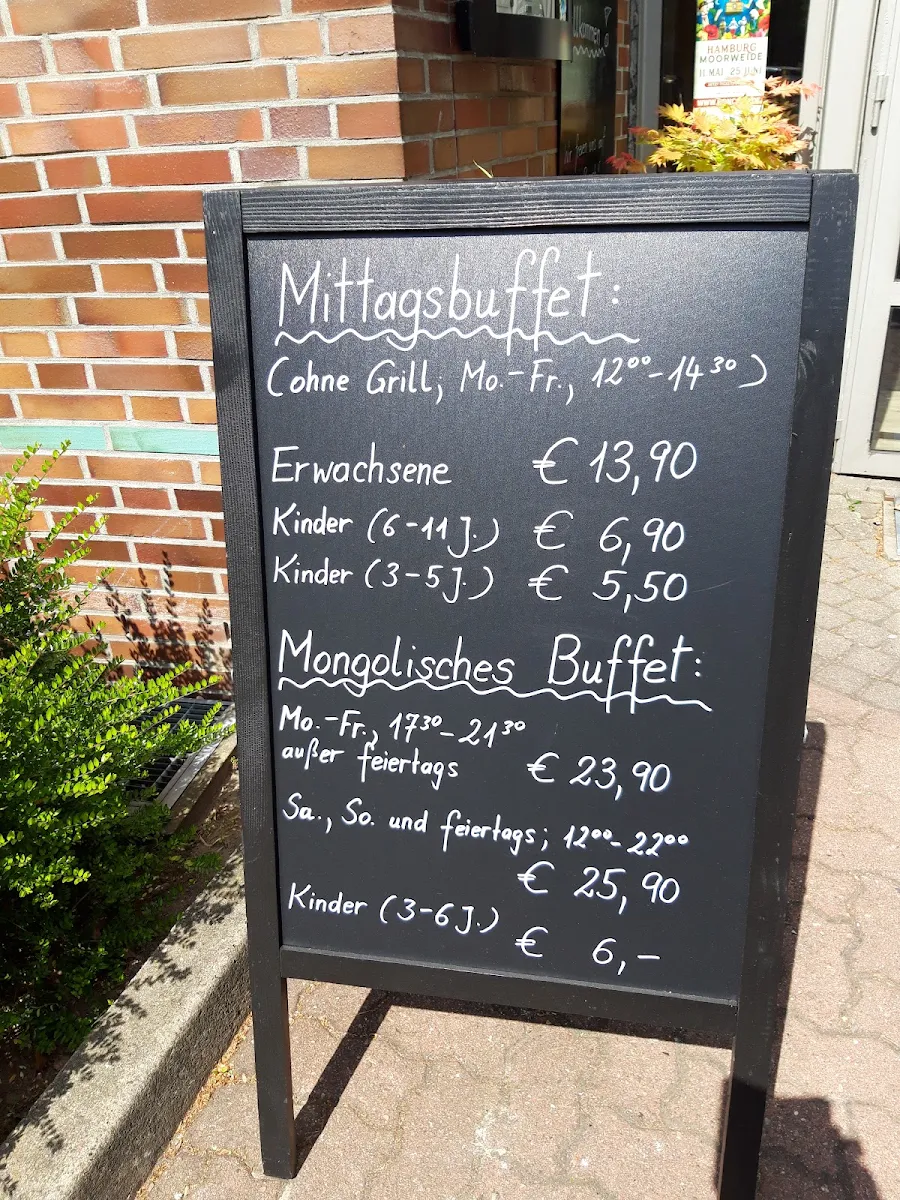 HAMBURG
MOORWEIDE
11. MAI - 25. JUNI
Mittagsbuffet:
(ohne Grill; Mo.-Fr., 12⁰⁰-14³⁰)
Erwachsene € 13,90
Kinder (6-11 J.) € 6,90
Kinder (3-5 J.) € 5,50
Mongolisches Buffet:
Mo.-Fr., 17³⁰-21³⁰
außer feiertags € 23,90
Sa., So. und feiertags; 12⁰⁰-22⁰⁰
€ 25,90
Kinder (3-6 J.)
€ 6,-